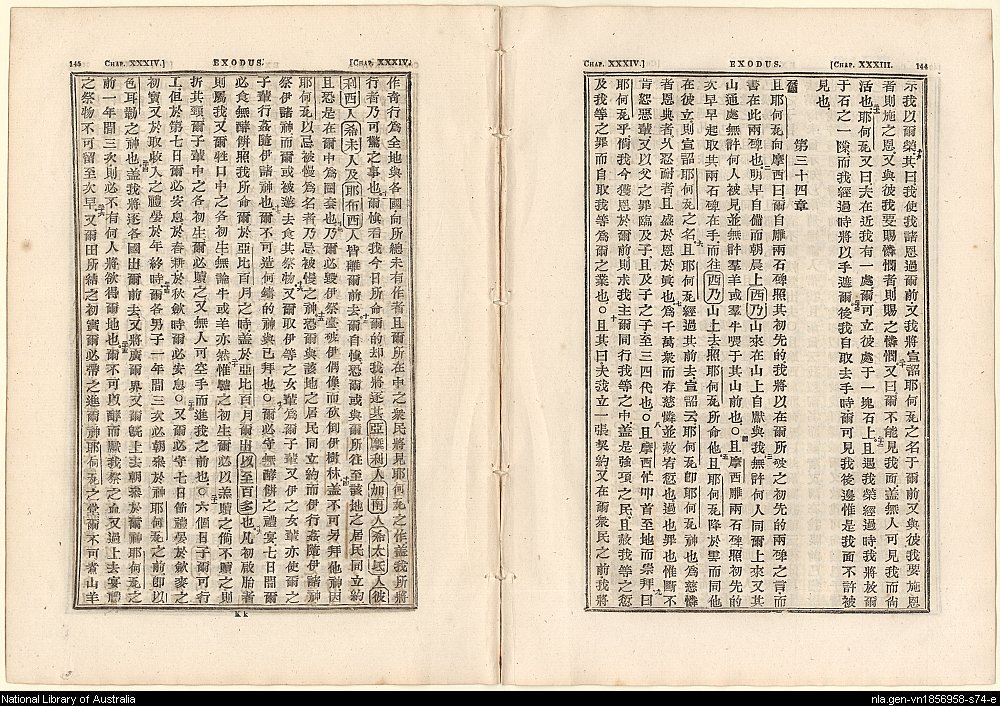 CHAP. XXXIV.] EXODUS. [CHAP. XXXIII. 144
示我以爾榮其曰我使我諸恩過爾前又我將宣詔耶何瓦之名于爾前又與彼我要施恩
者則施之恩又與彼我要賜憐憫者則賜之憐憫又曰爾不能見我面蓋無人可見我而尚
活也耶何瓦又曰夫在近我有一處爾可立彼處于一塊石上且遇我榮經過時我將放爾
于石之一隙而我經過時將以手遮爾後我自取去手時爾可見我後邊惟是我面不許被
見也
第三十四章
且耶何瓦向摩西曰爾自雕兩石碑照其初先的我將以在爾所破之初先的兩碑之言而
書在此兩碑也明早自備而朝晨上西乃山來在山上自獻與我無許何人同爾上來又其
山通處無許何人被見並無許羣羊或羣牛喫于其山前也○且摩西雕兩石碑照初先的
次早早起取其兩石碑在手而往西乃山上去照耶何瓦所命他且耶何瓦降於雲而同他
在彼立則宣詔耶何瓦之名且耶何瓦經過其前去宣詔云耶何瓦卽耶何瓦神也為慈憐
者恩與者久忍耐者且盛於恩於真也為千萬衆而存慈憐並赦宥愆也過也罪也惟斷不
肯恕惡輩又以父之罪臨及子且及子之子至三四代也○且摩西忙叩首至地而崇拜曰
耶何瓦乎倘我今獲恩於爾前則求我主爾同行我等之中蓋是強項之民且赦我等之愆
及我等之罪而自取我等為爾之業也○且其曰夫我立一張契約又在爾衆民之前我將
CHAP. XXXIV.] EXODUS. [CHAP. XXXIV. 145
作奇行為全地與各國向所總未有作者且爾所在中之衆民將見耶何瓦之作蓋我所將
行者乃可驚之事也爾慎看我今日所命爾的却我將逐其亞摩利人加南人希太氐人彼
利西人希未人及耶布西人皆離爾前去爾自慎恐爾或與爾所往至該地之居民同立約
且恐是在爾中為圈套也乃爾必毀伊祭臺破伊偶像而砍倒伊樹林蓋不可另拜他神因
耶何瓦以忌被慢為名者乃忌被慢之神恐爾與該地之居民同立約而伊行姦隨伊諸神
祭伊諸神而爾或被邀去食其祭物又爾取伊等之女輩為爾子輩又伊之女輩亦使爾之
子輩行姦隨伊諸神也爾不可造何鑄的神與己拜也○爾必守無酵餅之禮宴七日間爾
必食無酵餅照我所命爾於亞比百月之時蓋於亞比百月爾出以至百多也凡初啟胎者
則屬我又爾牲口中之各初生無論牛或羊亦然惟驢之初生爾必以羔贖之倘不贖之則
折其頸爾子輩中之各初生爾必贖之又無人可空手而進我之前也○六個日子爾可行
工但於第七日爾必安息於春耕於秋斂時爾必安息○又爾必守七日節禮宴於斂麥之
初實又於取收入之禮宴於年終時爾各男子一年間三次必朝衆於神耶何瓦之前即以
色耳勒之神也蓋我將逐各國出爾前去又將廣爾界又爾旣上去朝衆於爾神耶何瓦之
前一年間三次則必不有何人將欲得爾地也爾不可以酵而獻我祭之血又過上去宴禮
之祭物不可留至次早又爾田所結之初實爾必帶之進爾神耶何瓦之堂爾不可煮山羊
K k
National Library of Australia
nla.gen-vn1856958-s74-e